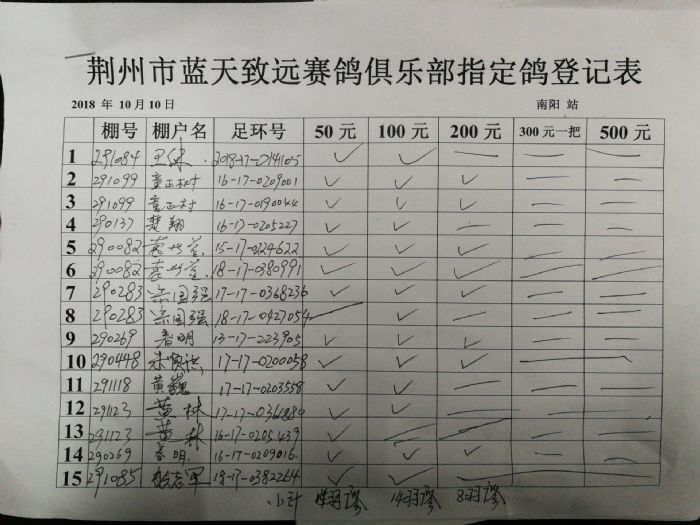 荆州市蓝天致远赛鸽俱乐部指定鸽登记表
2018 年 10 月 10 日 南阳 站
棚号 棚户名 足环号 50 元 100 元 200 元 300元一把 500 元
1 291084 2018-17-0141105 ✓ ✓ — — —
2 291099 童正树 16-17-0209001 ✓ ✓ ✓ — —
3 291099 童正树 16-17-0190044 ✓ ✓ ✓ — —
4 290137 楚翔 16-17-0205227 ✓ ✓ — — —
5 290082 15-17-0224622 ✓ ✓ ✓ — —
6 290082 18-17-0380991 ✓ ✓ ✓ — —
7 290283 宗国强 17-17-0368236 ✓ ✓ ✓ — —
8 290283 宗国强 18-17-0427054 — ✓ — — —
9 290269 春明 13-17-223905 ✓ ✓ ✓ — —
10 290448 17-17-0200058 ✓ ✓ ✓ — —
11 291118 黄巍 17-17-0203558 ✓ ✓ — — —
12 291123 黄林 17-17-0361880 ✓ ✓ — — —
13 291123 黄林 16-17-0205439 ✓ — — —
14 290269 春明 16-17-0209016 ✓ ✓ ✓ — —
15 291085 志军 18-17-0382264 ✓ ✓ — — —
小计 羽 14羽 8羽